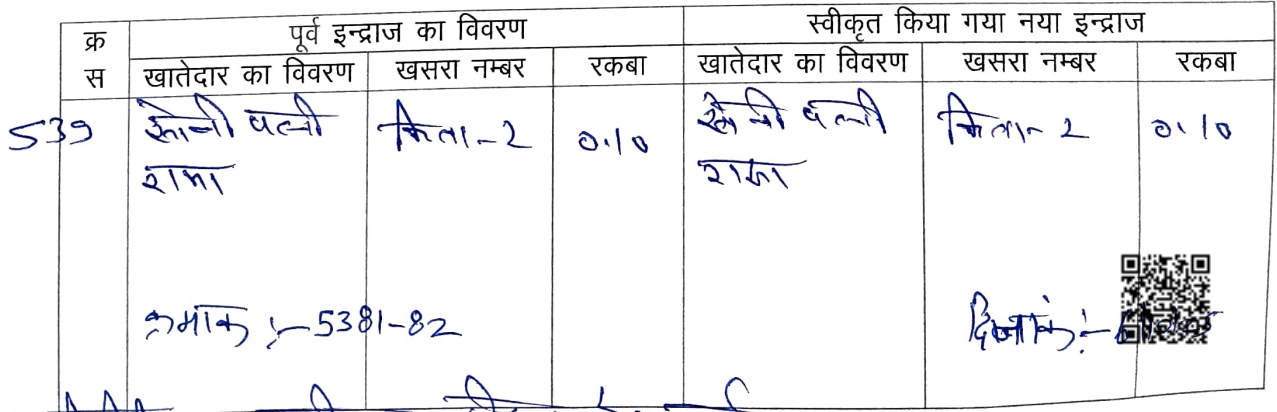 क्र स पूर्व इन्द्राज का विवरण स्वीकृत किया गया नया इन्द्राज
खातेदार का विवरण खसरा नम्बर रकबा खातेदार का विवरण खसरा नम्बर रकबा
539 पत्नी किता-2 0.10 पत्नी किता-2 0.10
रामा रामा
क्रमांक :- 5381-82 दिनांक :-